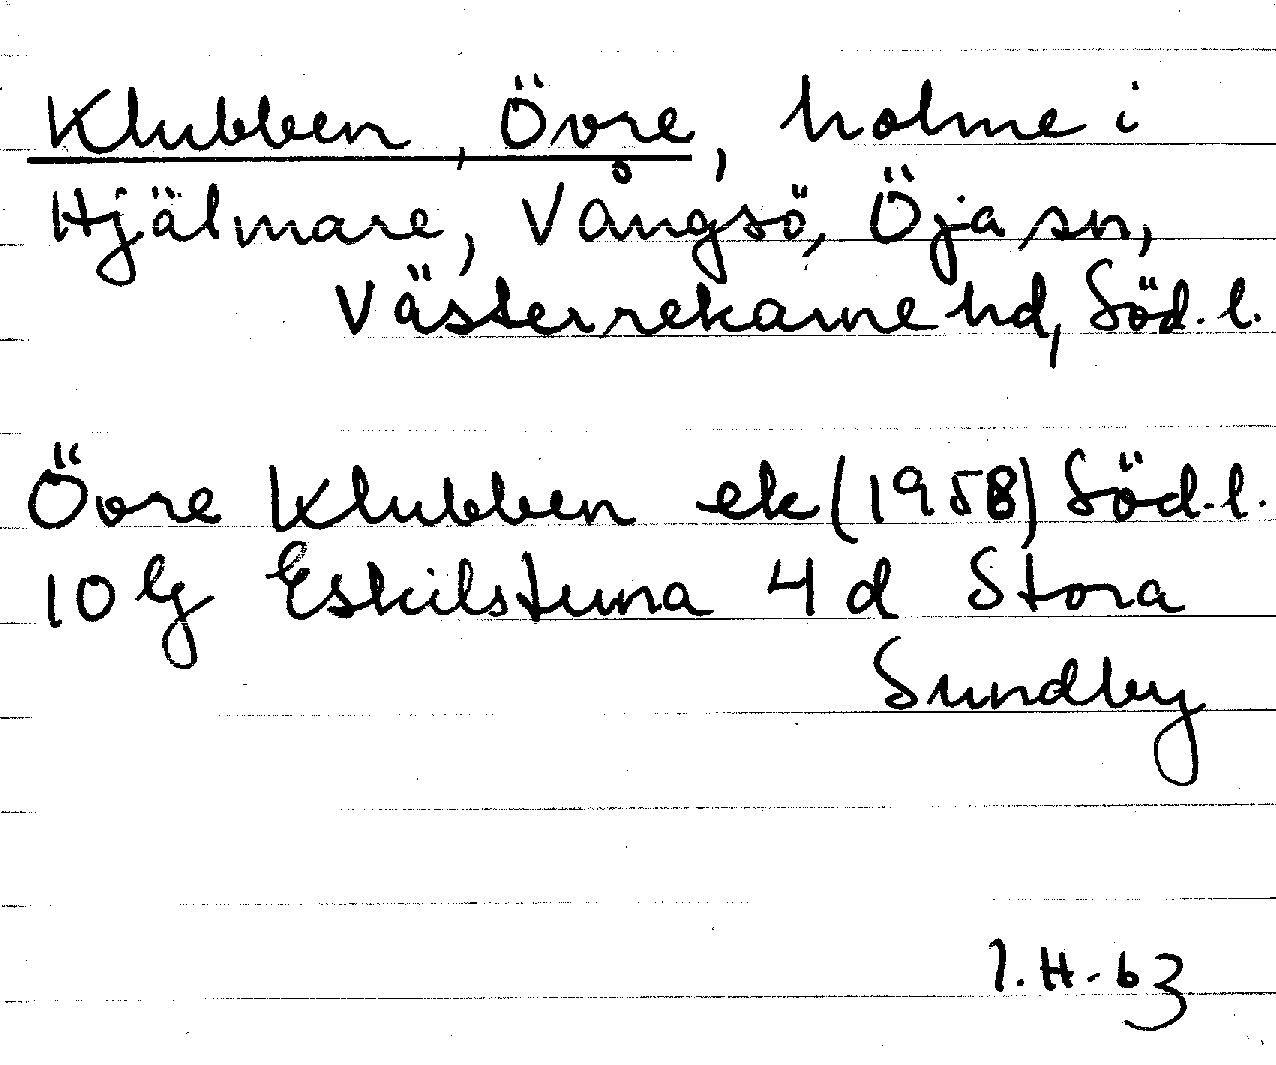 Klubben, Övre, holme i
Hjälmare, Vångsö, Öja sn,
Västerrekarne hd, Söd. l.
Övre Klubben ek (1958) Söd. l.
10 G Eskilstuna 4 d Stora
Sundby
I. H. 63